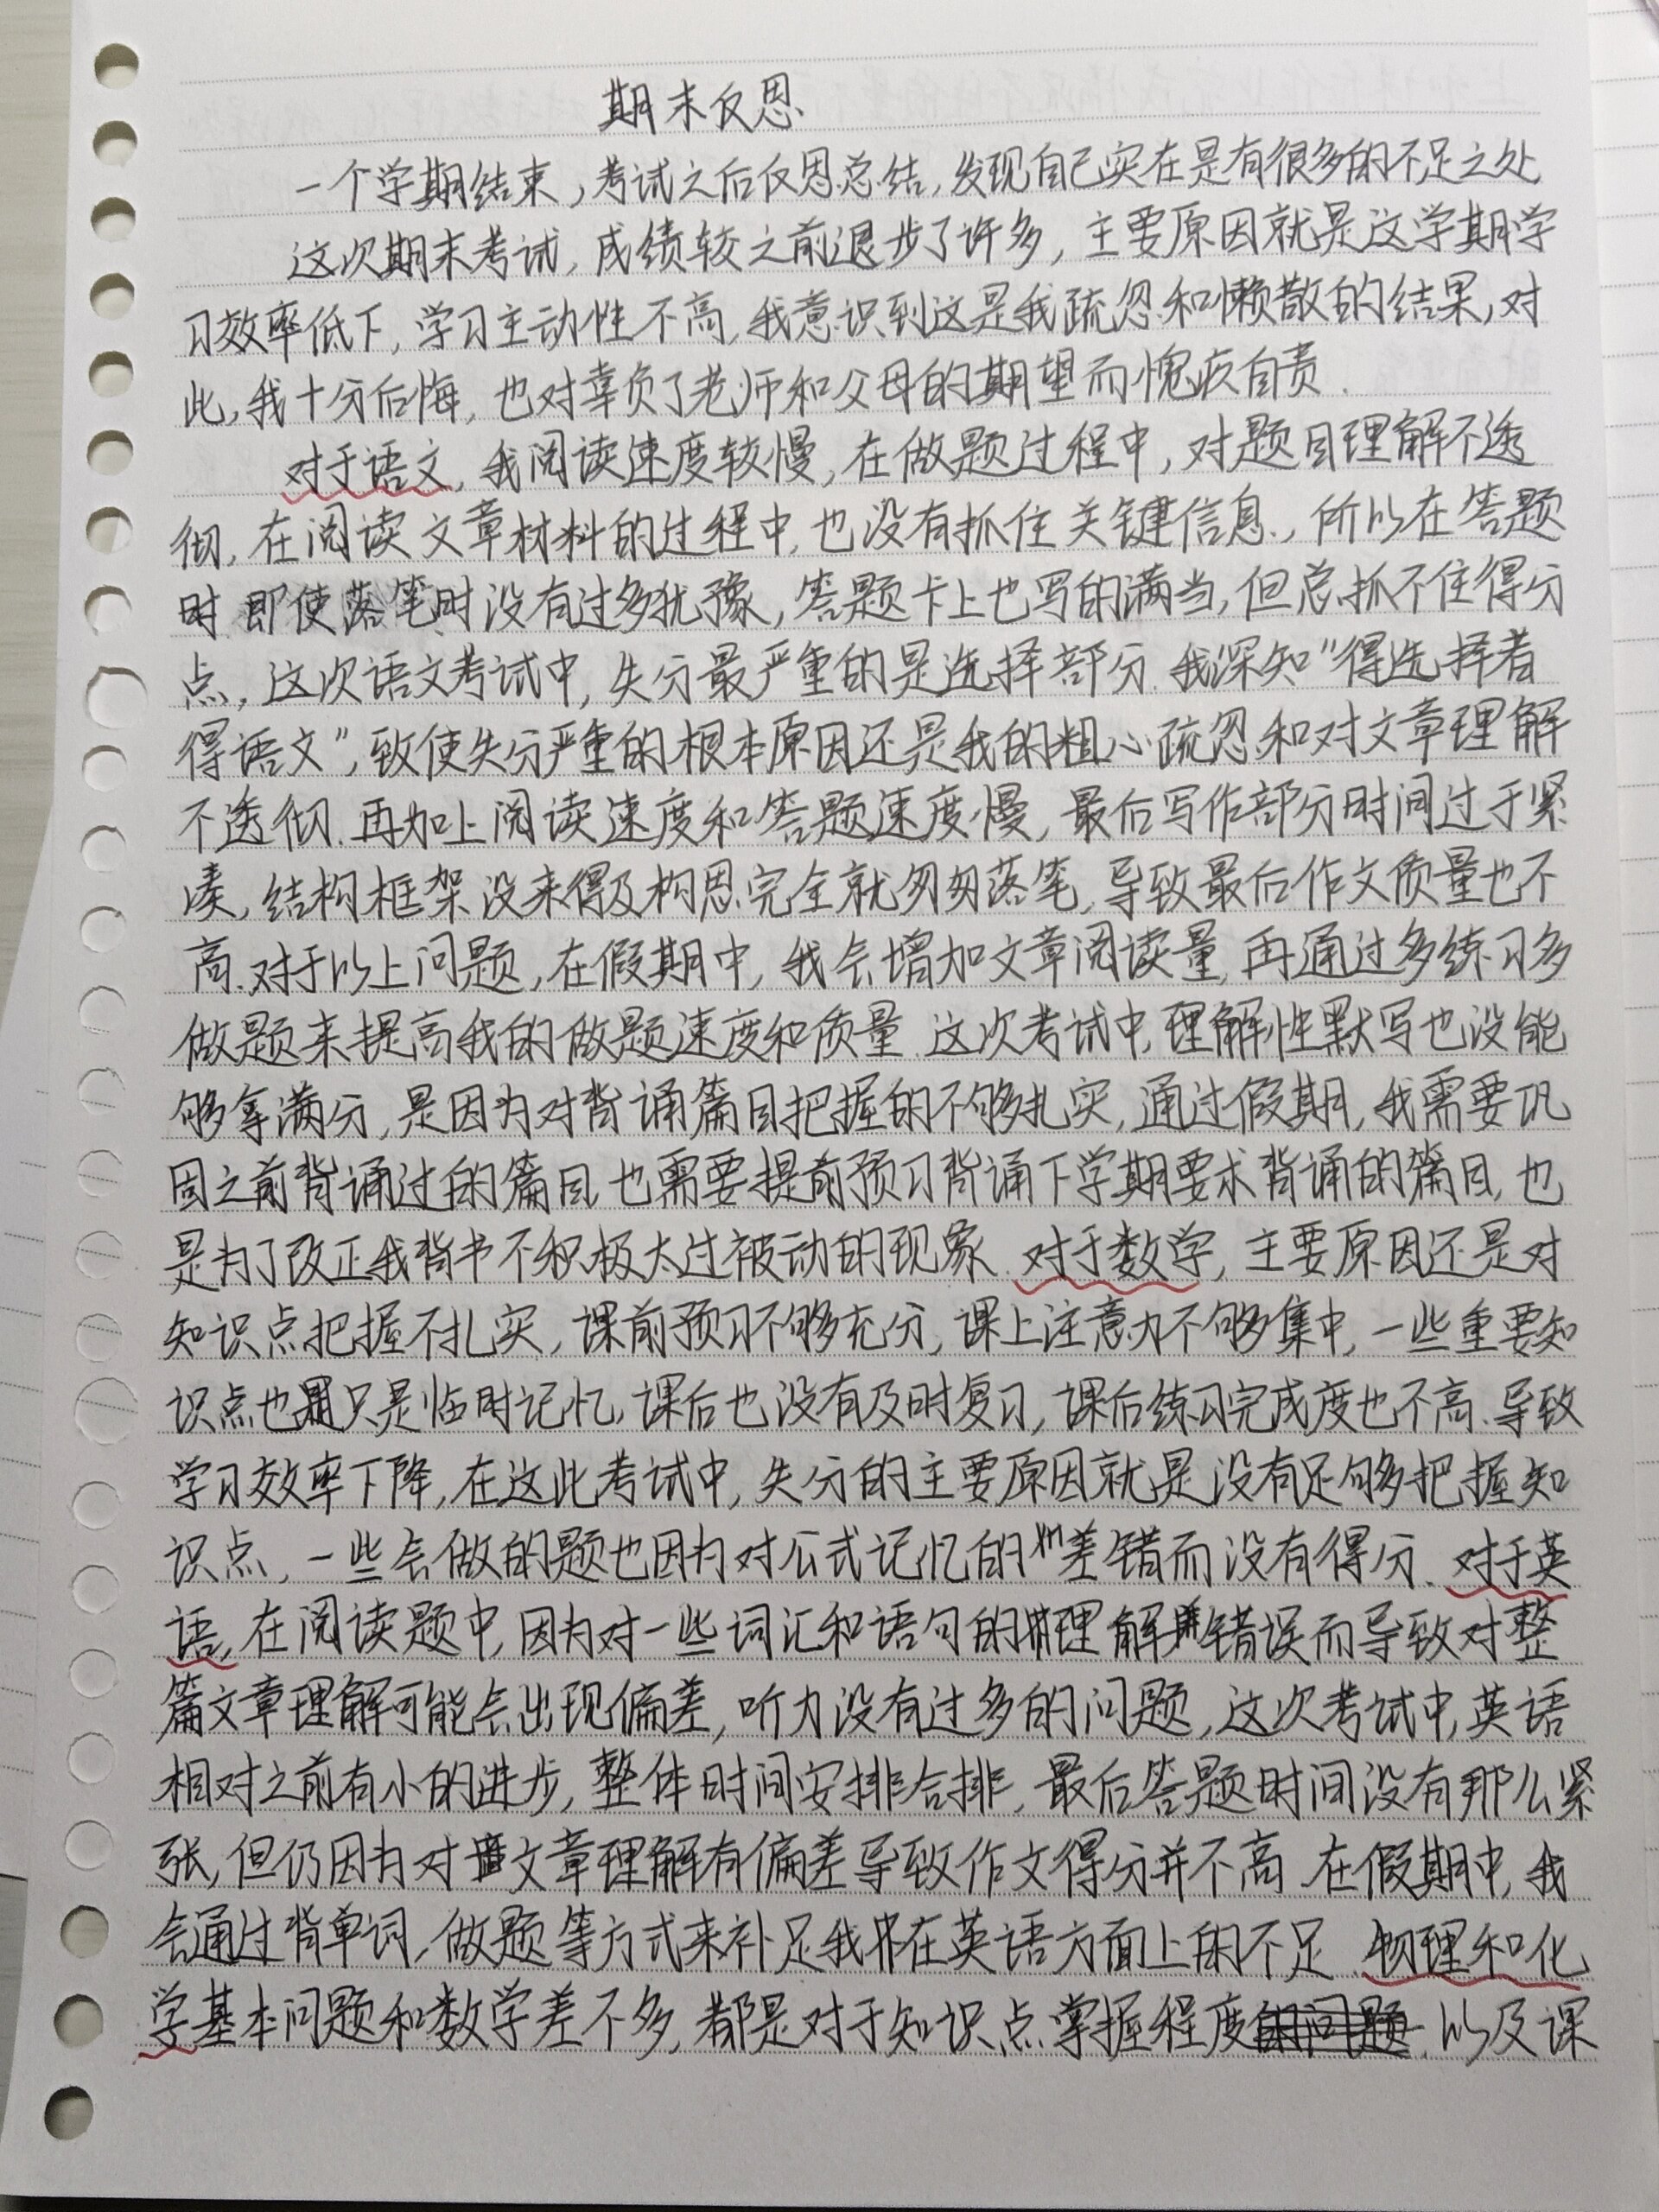 期末反思
一个学期结束,考试之后反思总结,发现自己实在是有很多的不足之处.
这次期末考试,成绩较之前退步了许多,主要原因就是这学期学
习效率低下,学习主动性不高,我意识到这是我疏忽和懒散的结果,对
此,我十分后悔,也对辜负了老师和父母的期望而愧疚自责.
对于语文,我阅读速度较慢,在做题过程中,对题目理解不透
彻,在阅读文章材料的过程中,也没有抓住关键信息.,所以在答题
时,即使落笔时没有过多犹豫,答题卡上也写的满当,但总抓不住得分
点.这次语文考试中,失分最严重的是选择部分.我深知"得选择者
得语文",致使失分严重的根本原因还是我的粗心疏忽和对文章理解
不透彻.再加上阅读速度和答题速度慢,最后写作部分时间过于紧
凑,结构框架没来得及构思完全就匆匆落笔,导致最后作文质量也不
高.对于以上问题,在假期中,我会增加文章阅读量,再通过多练习多
做题来提高我的做题速度和质量.这次考试中,理解性默写也没能
够拿满分,是因为对背诵篇目把握的不够扎实,通过假期,我需要巩
固之前背诵过的篇目,也需要提前预习背诵下学期要求背诵的篇目,也
是为了改正我背书不积极太过被动的现象.对于数学,主要原因还是对
知识点把握不扎实,课前预习不够充分,课上注意力不够集中,一些重要知
识点也只是临时记忆,课后也没有及时复习,课后练习完成度也不高.导致
学习效率下降,在这此考试中,失分的主要原因就是没有足够把握知
识点,一些会做的题也因为对公式记忆的差错而没有得分.对于英
语,在阅读题中,因为对一些词汇和语句的理解错误而导致对整
篇文章理解可能会出现偏差,听力没有过多的问题,这次考试中,英语
相对之前有小的进步,整体时间安排合排,最后答题时间没有那么紧
张,但仍因为对文章理解有偏差导致作文得分并不高.在假期中,我
会通过背单词,做题等方式来补足我在英语方面上的不足.物理和化
学基本问题和数学差不多,都是对于知识点掌握程度,以及课